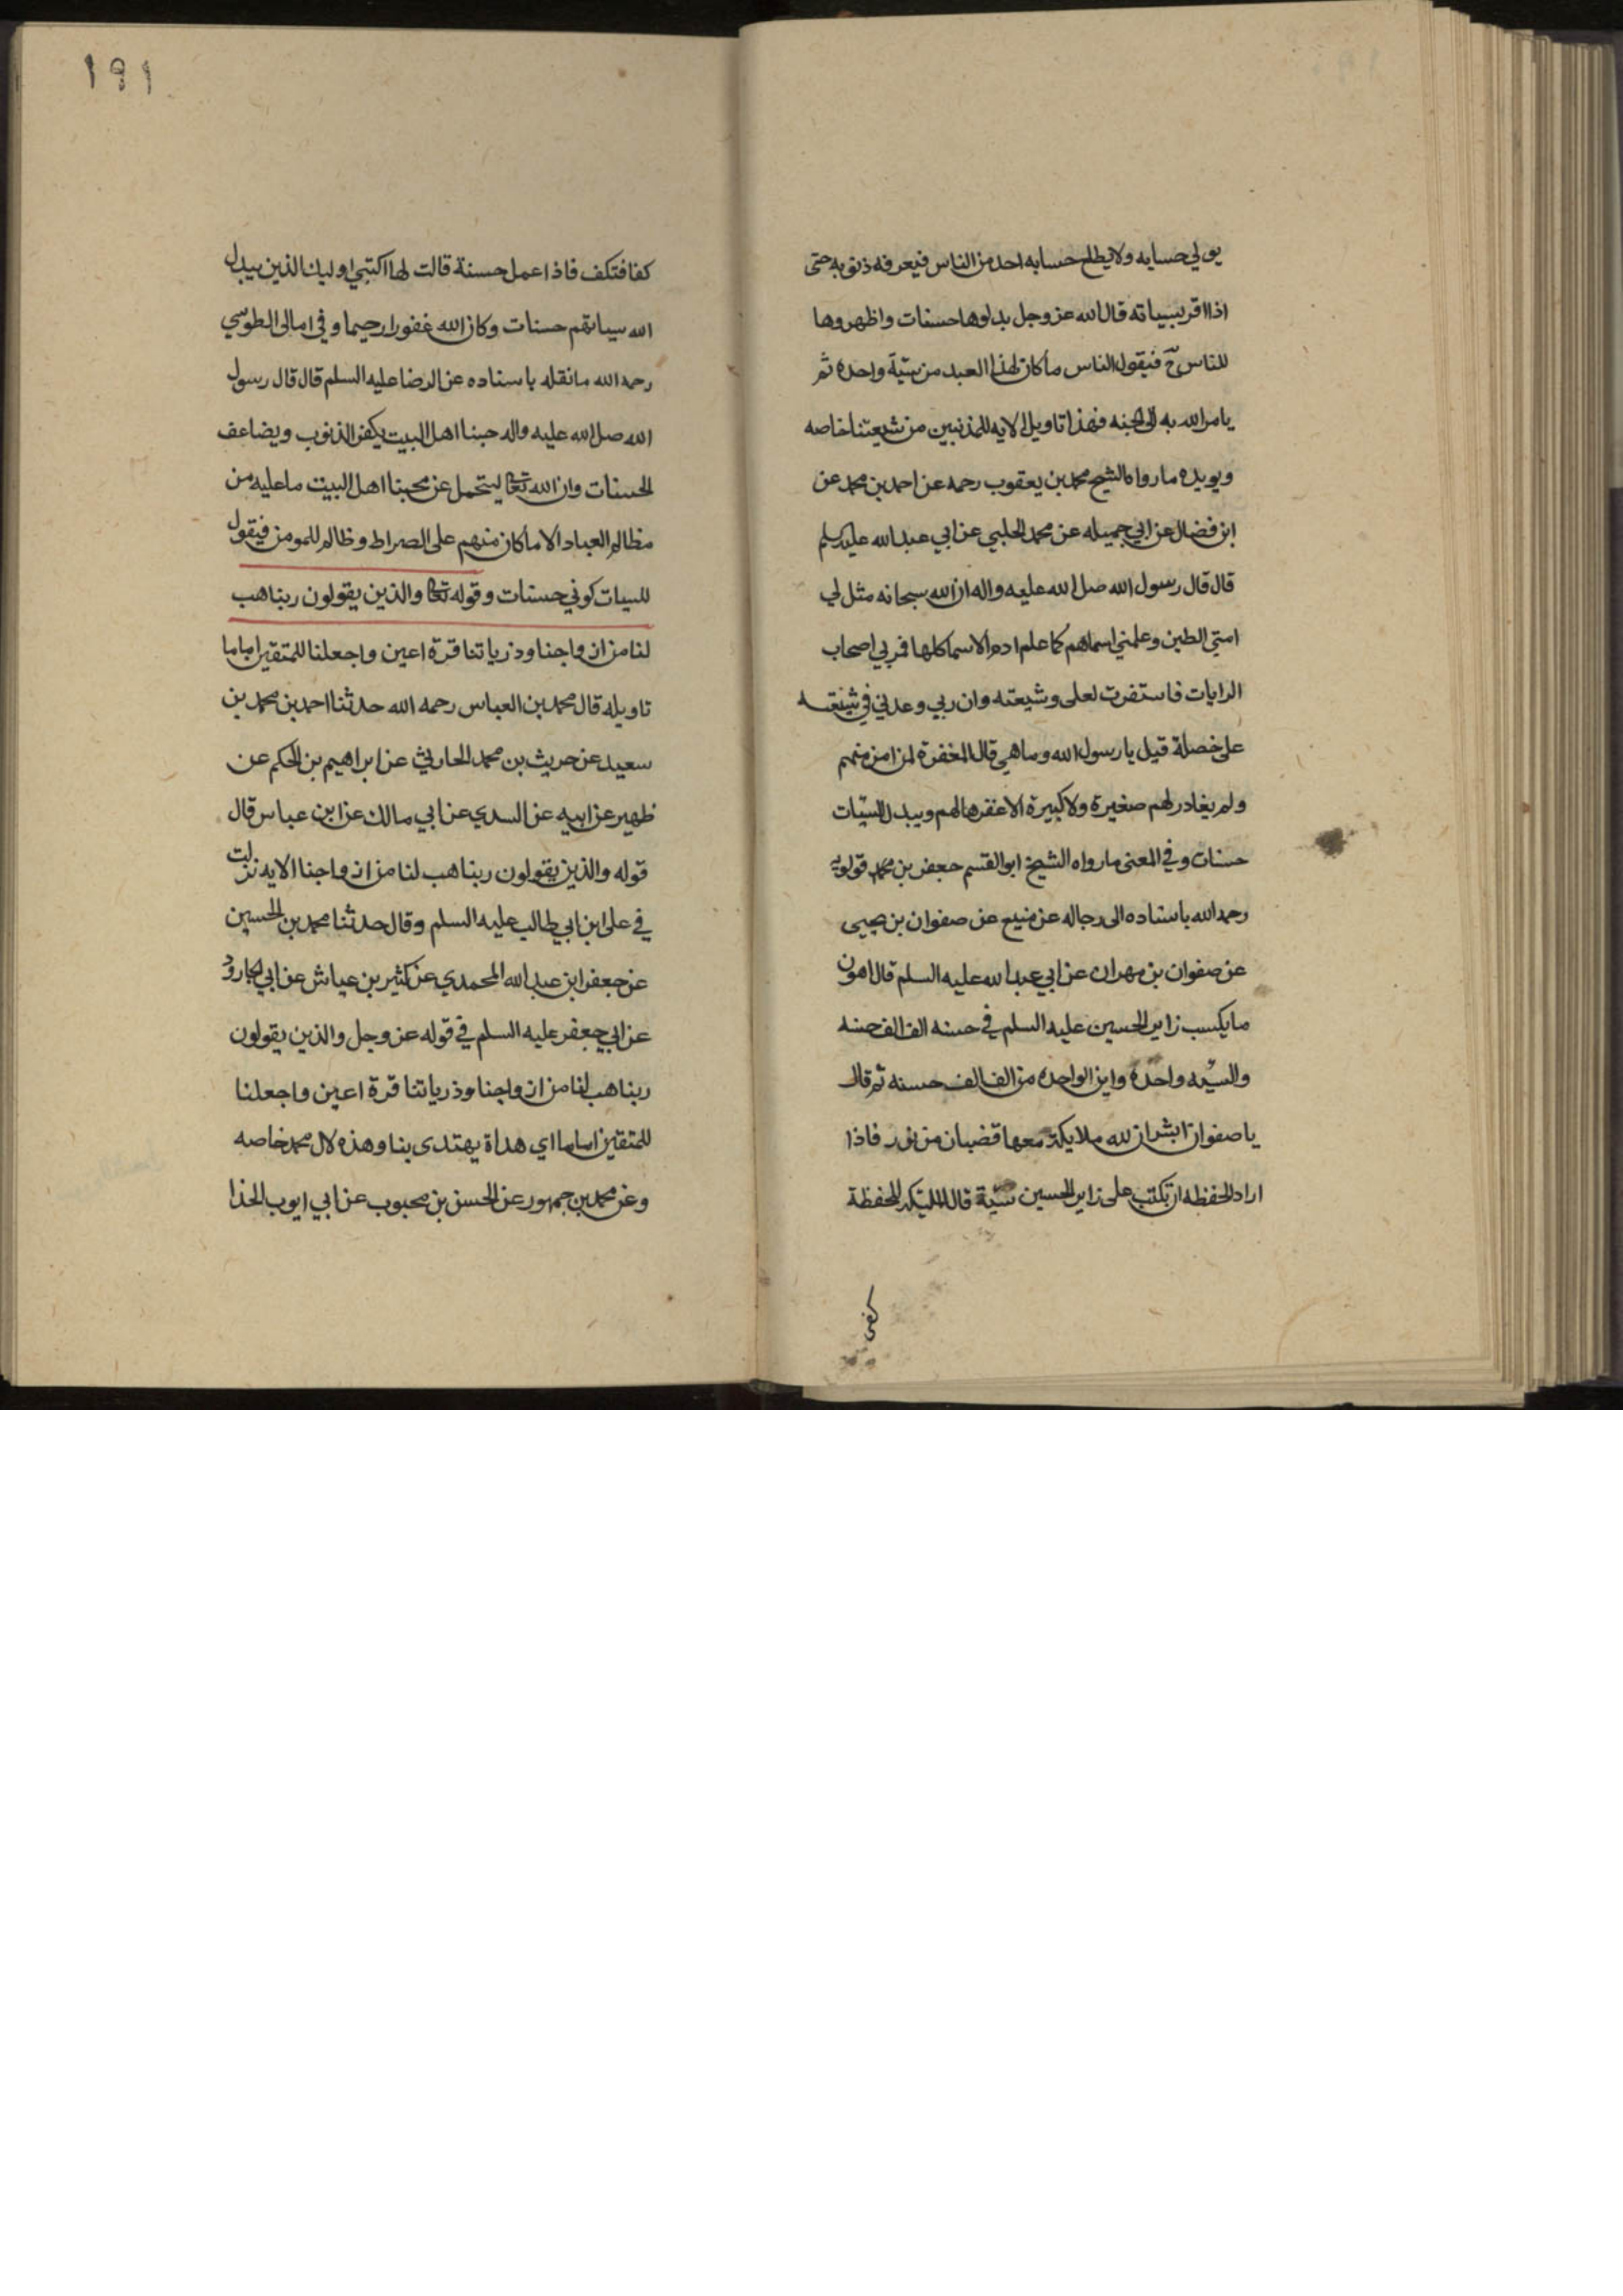 يولي حسابه ولا يطلع حسابه احد من الناس فيعرفه ذنوبه حتى
اذا اقر بسياته قال الله عز وجل بدلوها حسنات واظهروها
للناس ح فيقول الناس ما كان لهذا العبد من سيئة واحده ثم
يامر الله به الى الجنه فهذا تاويل الايه للمذنبين من شيعتنا خاصه
ويويده ما رواه الشيخ محمد بن يعقوب رحمه عن احمد بن محمد عن
ابن فضال عن ابي جميله عن محمد الحلبي عن ابي عبد الله عليه السلم
قال قال رسول الله صل الله عليه واله ان الله سبحانه مثل لي
امتي الطين وعلمني اسماهم كما علم ادم الاسما كلها فمر بي اصحاب
الرايات فاستغفرت لعلى وشيعته وان ربي وعدني في شيعته
على خصلة قيل يا رسول الله وما هي قال المغفرة لمن امن منهم
ولم يغادر لهم صغيرة ولا كبيرة الا غفرها لهم ويبدل السيّات
حسنات وفي المعنى ما رواه الشيخ ابو القسم جعفر بن محمد قولويه
رحمه الله باسناده الى رجاله عن منيع عن صفوان بن يحيى
عن صفوان بن مهران عن ابي عبد الله عليه السلم قال اهون
ما يكسب زاير الحسين عليه السلم في حسنه الف الف حسنه
والسيّه واحدة واين الواحده من الف الف حسنه ثم قال
يا صفوان ابشر ان لله ملايكة معها قضبان من نور فاذا
اراد الحفظه ان تكتب على زاير الحسين سيّة قالت المليكه للحفظة
كفى
١٩١
كفا فتكف فاذا عمل حسنة قالت لها اكتبي اوليك الذين يبدل
الله سياتهم حسنات وكان الله غفورا رحيما وفي امالى الطوسي
رحمه الله ما نقله باسناده عن الرضا عليه السلم قال قال رسول
الله صل الله عليه واله حبنا اهل البيت يكفر الذنوب ويضاعف
الحسنات وان الله تعا ليتحمل عن محبنا اهل البيت ما عليه من
مظالم العباد الا ما كان منهم على الصراط وظالم للمومن فيقول
للسيات كوني حسنات وقوله تعا والذين يقولون ربنا هب
لنا من ازواجنا وذرياتنا قرة اعين واجعلنا للمتقين اماما
تاويله قال محمد بن العباس رحمه الله حدثنا احمد بن محمد بن
سعيد عن حريث بن محمد الحارثي عن ابراهيم بن الحكم عن
ظهير عن ابيه عن السدي عن ابي مالك عن ابن عباس قال
قوله والذين يقولون ربنا هب لنا من ازواجنا الايه نزلت
في على ابن ابي طالب عليه السلم وقال حدثنا محمد بن الحسين
عن جعفر ابن عبد الله المحمدي عن كثير بن عياش عن ابي الجارود
عن ابي جعفر عليه السلم في قوله عز وجل والذين يقولون
ربنا هب لنا من ازواجنا وذرياتنا قرة اعين واجعلنا
للمتقين اماما اي هداة يهتدى بنا وهذه لال محمد خاصه
وعن محمد بن جمهور عن الحسن بن محبوب عن ابي ايوب الخذا